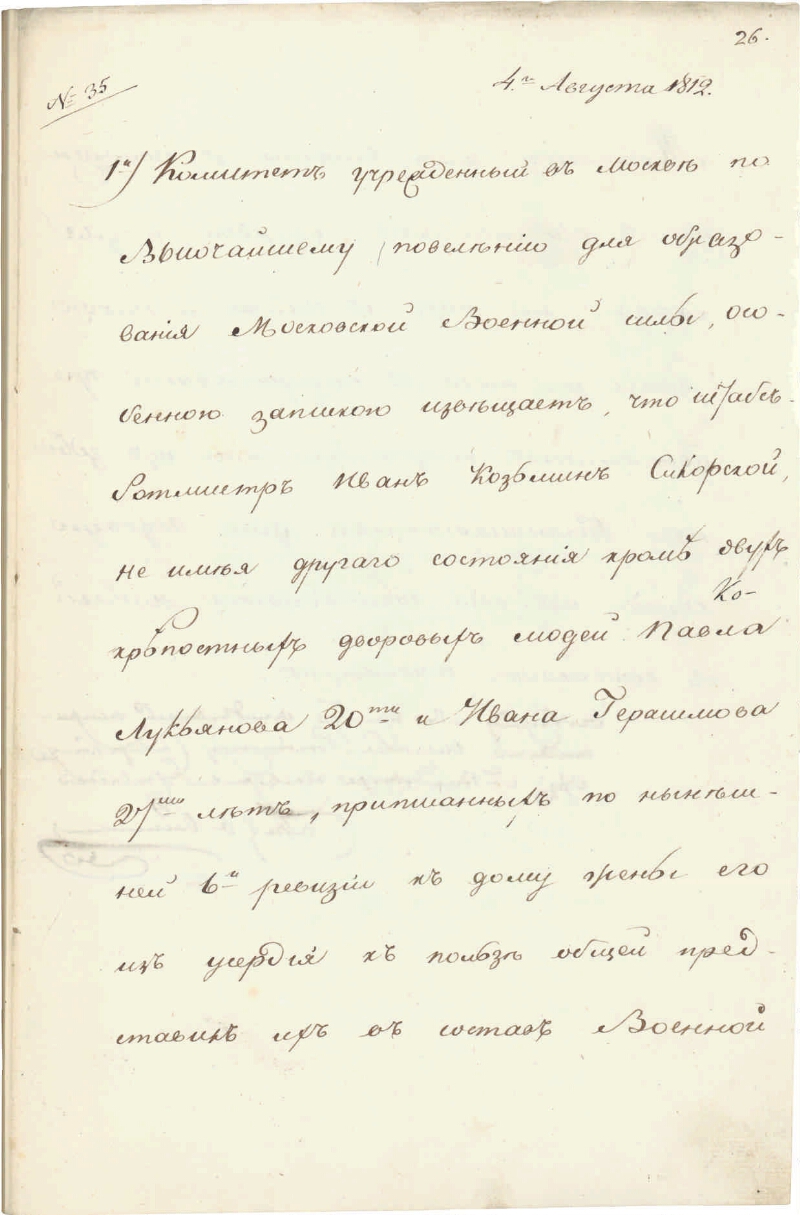 26.
№ 35
4го Августа 1812.
1е) Комитетъ учрежденный въ Москвѣ по
Высочайшему повелѣнію для образо-
ванія Московской Военной силы, осо-
бенною запискою извѣщаетъ, что штабсъ-
Ротмистръ Иванъ Козьминъ Сикорской,
не имѣя другаго состоянія кромѣ двухъ
Ко-
крѣпостныхъ дворовыхъ людей Павла
Лукьянова 20ти и Ивана Герасимова
27ми лѣтъ, приписанныхъ по нынѣш-
ней 6й ревизіи къ дому жены его
изъ усердія къ пользѣ общей пред-
ставилъ ихъ въ составъ Военной